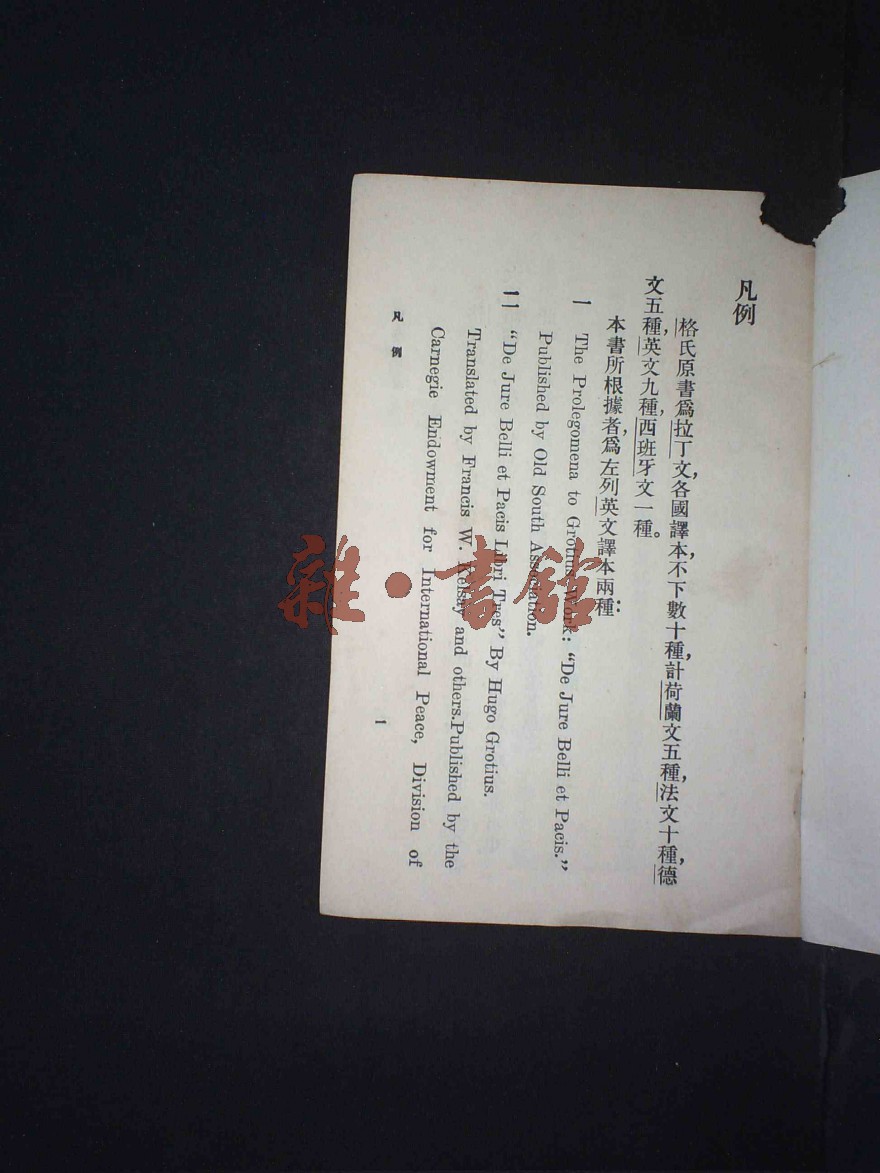 凡例
格氏原書爲拉丁文，各國譯本，不下數十種，計荷蘭文五種，法文十種，德
文五種，英文九種，西班牙文一種。
本書所根據者，爲左列英文譯本兩種：
一 The Prolegomena to Grotius Work: “De Jure Belli et Pacis.”
Published by Old South Association.
二 “De Jure Belli et Pacis Libri Tres” By Hugo Grotius.
Translated by Francis W. Kelsay and others.Published by the
Carnegie Endowment for International Peace, Division of
凡例
一
雜·書館